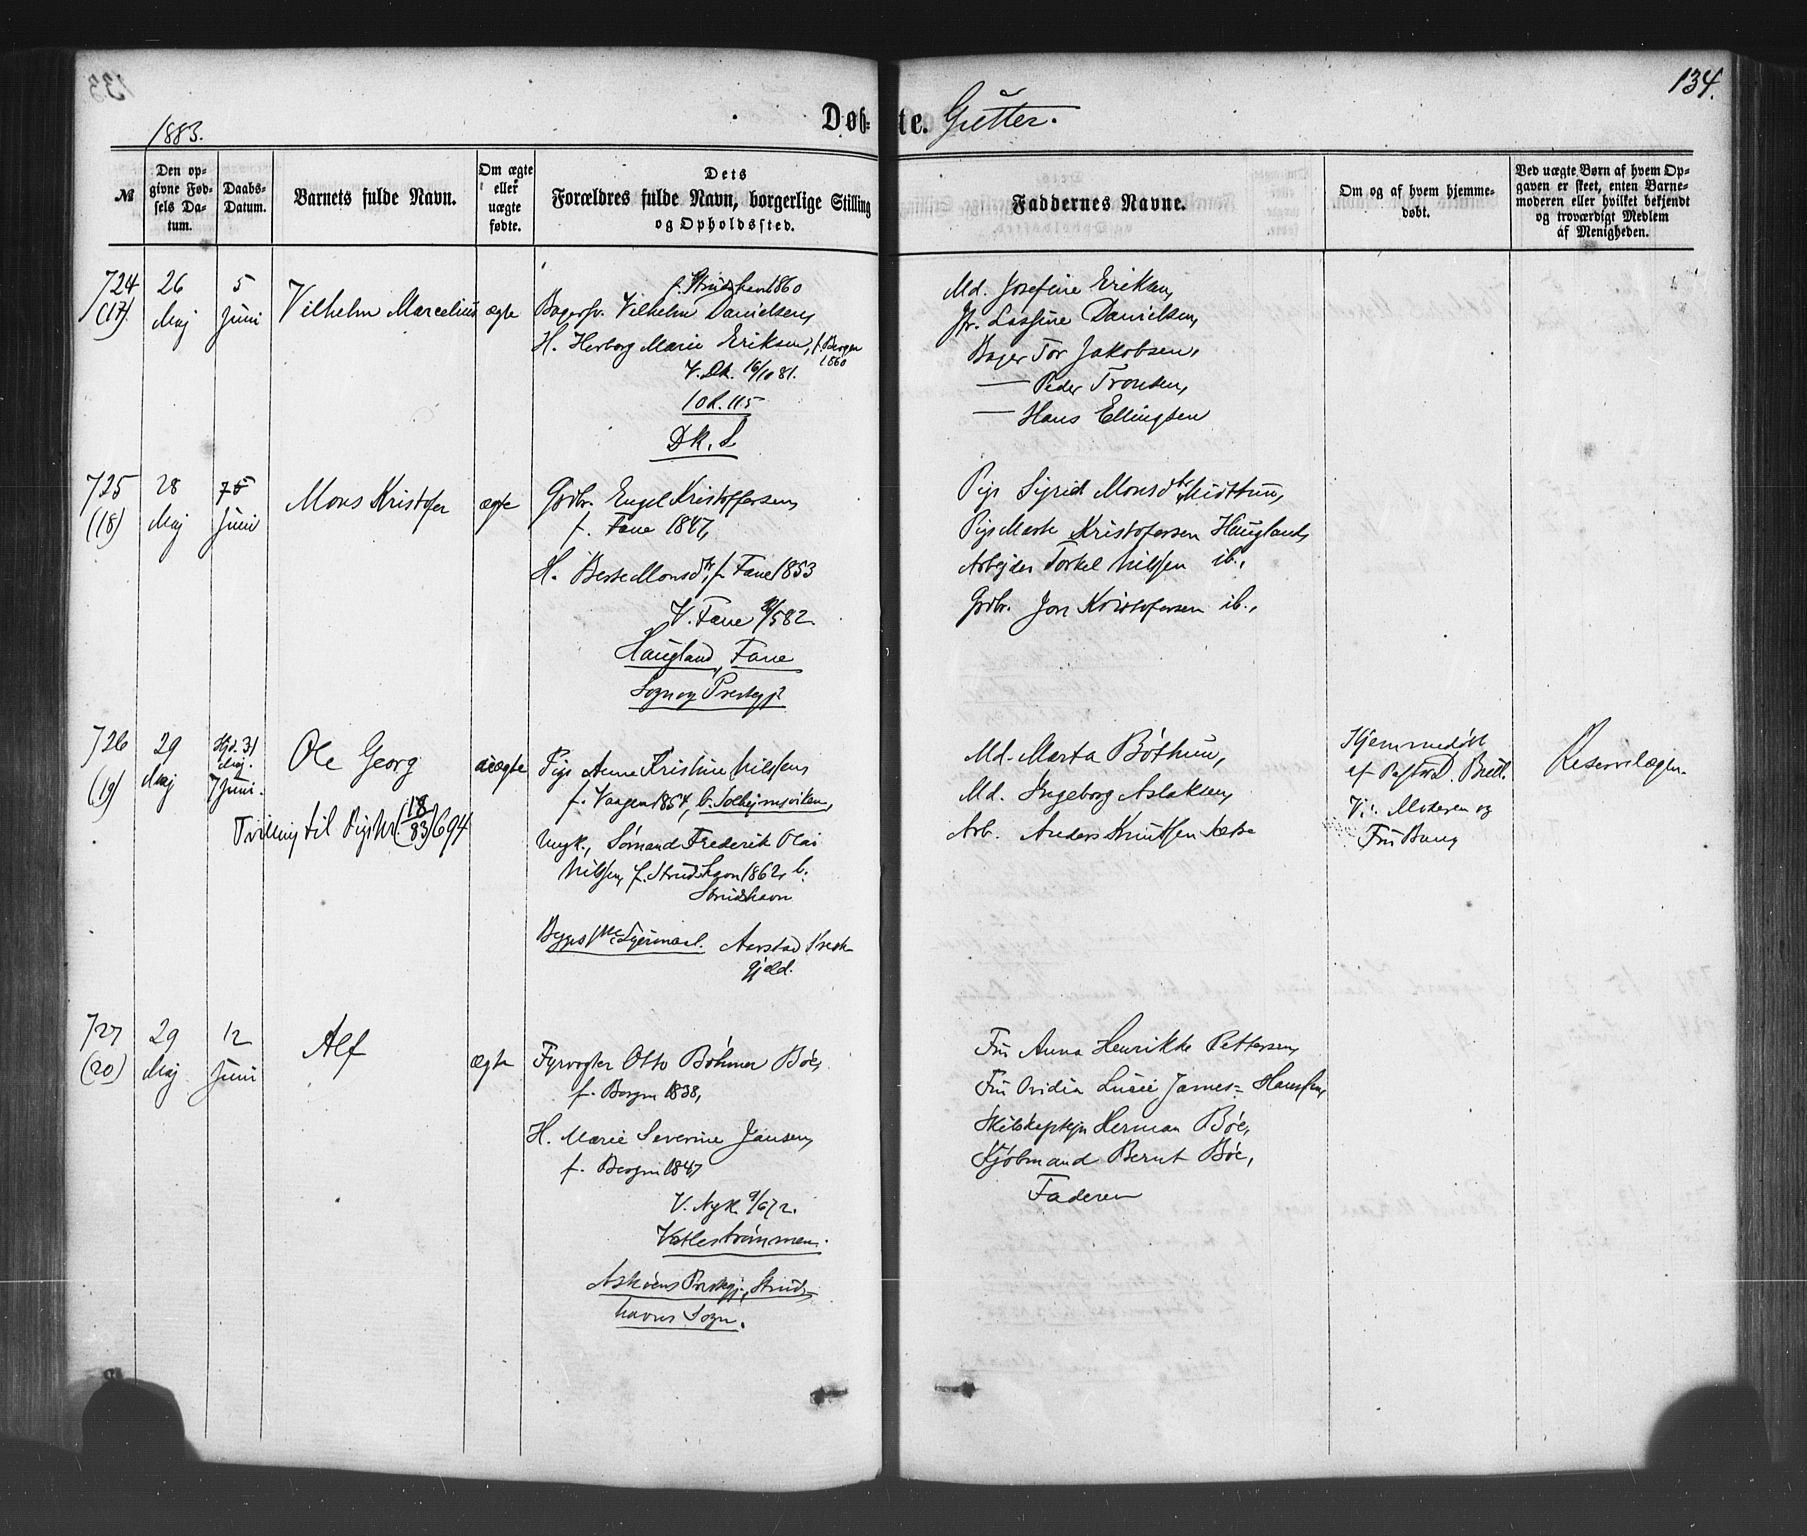 134.
1883.
Døb-te. Gutter.
№
Den opgivne Fødsels Datum.
Daabs-Datum.
Barnets fulde Navn.
Om ægte eller uægte fødte.
Dets Forældres fulde Navn, borgerlige Stilling og Opholdssted.
Faddernes Navne.
Om og af hvem hjemmedøbt.
Ved uægte Børn af hvem Opgaven er skeet, enten Barnemoderen eller hvilket bekjendt og troværdigt Medlem af Menigheden.
724 (17)
26 Maj
5 Juni
Vilhelm Marcelius
ægte
f. Strudshavn 1860
Bagersv. Vilhelm Danielsen,
H. Herborg Marie Eriksen, f. Bergen 1860
V. Dk. 16/10 81.
10 R. 115
Dk. S.
Md. Josefine Eriksen,
Jfr. Danielsen,
Bager Tor Jakobsen,
— Peder Tronsen,
— Hans Ellingsen
725 (18)
28 Maj
Juni
Mons Kristofer
ægte
Grdbr. Engel Kristoffersen,
f. Fane 1847,
H. Monsdtr, f. Fane 1853
V. Fane
Haugland, Fane
Sogn og Prestegj.
Pige Sigrid Monsdtr Midttun,
Pige Marte Kristofersen Haugland,
Arbejder Torkel Nilssen ib.,
Grdbr. Jon Kristofersen ib.,
726 (19)
29 Maj
Hjd. 31 Maj.
7 Juni.
Ole Georg
uægte
Tvilling til Pige Nr. (18/83) 694
Pige Anne Kristine Nilssen
f. Vaagen 1854, b. Solheimsviken,
Ungk. Frederik Olai
Nilssen, f. Strudshavn 1862, b.
Strudshavn
Begges 1ste Lejermaal. Aarstad Prestegjeld.
Md. Marta Bøthun,
Md. Ingeborg Aslaksen,
Arb. Anders Knutsen
Hjemmedøbt
af
V.: Moderen og
Fru Bang
Reservelægen.
727 (20)
29 Maj
12 Juni
Alf
ægte
Fyrvogter Otto Bøhmer Bøe,
f. Bergen 1838,
H. Marie Severine Jansen,
f. Bergen 1847
V. Nyk. 9/6 72.
Vatlestrømmen.
Askøens Prestegj., Struds-
havns Sogn.
Fru Anna Henrikke Pettersen,
Fru Ovidia Lucie James-Hanssen,
Skibskaptejn Herman Bøe,
Kjøbmand Bernt Bøe,
Faderen